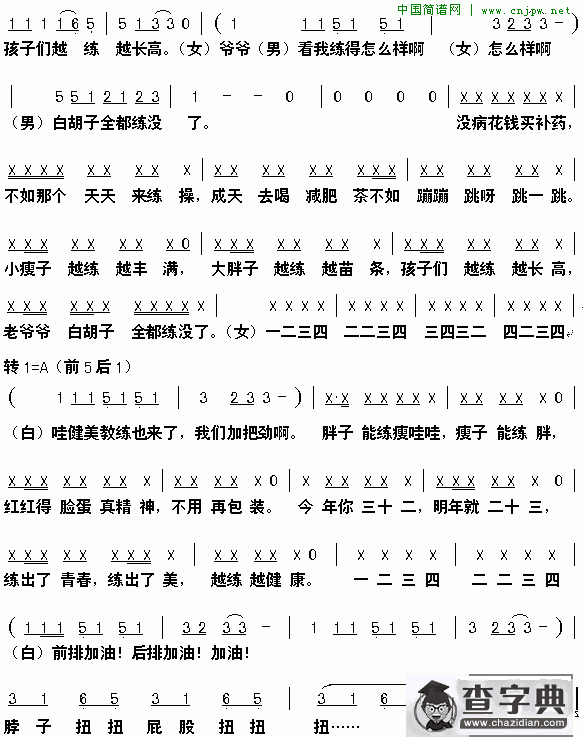 中国简谱网 www.cnjpw.net
1 1 1 1 6 5 | 5 1 3 3 0 | ( 1 1 1 5 1 5 1 | 3 2 3 3 - )
孩子们越 练 越长高。（女）爷爷（男）看我练得怎么样啊 （女）怎么样啊
| 5 5 1 2 1 2 3 | 1 - - 0 | 0 0 0 0 |
（男）白胡子全都练没 了。 没病花钱买补药，
X X X X X X X X X | X X X X X X X | X X X X X X X X X |
不如那个 天天 来练 操，成天 去喝 减肥 茶不如 蹦蹦 跳呀 跳一跳。
小瘦子 越练 越丰 满， 大胖子 越练 越苗 条，孩子们 越练 越长 高，
老爷爷 白胡子 全都练没了。（女）一二三四 二二三四 三四三二 四二三四
转 1=A（前 5 后 1）
( 1 1 1 5 1 5 1 | 3 2 3 3 - ) | X·X X X X X X | X X X X X 0 |
（白）哇健美教练也来了，我们加把劲啊。 胖子 能练瘦哇哇，瘦子 能练 胖，
红红得 脸蛋 真精 神，不用 再包 装。 今 年你 三十 二，明年就 二十 三，
练出了 青春，练出了 美， 越练 越健 康。 一 二 三 四 二 二 三 四
( 1 1 1 5 1 5 1 | 3 2 3 3 - | 1 1 1 5 1 5 1 | 3 2 3 3 - ) |
（白）前排加油！后排加油！加油！
3 1 6 5 | 3 1 6 5 | 3
脖 子 扭 扭 屁 股 扭 扭 扭……
查字典
www.chazidian.com